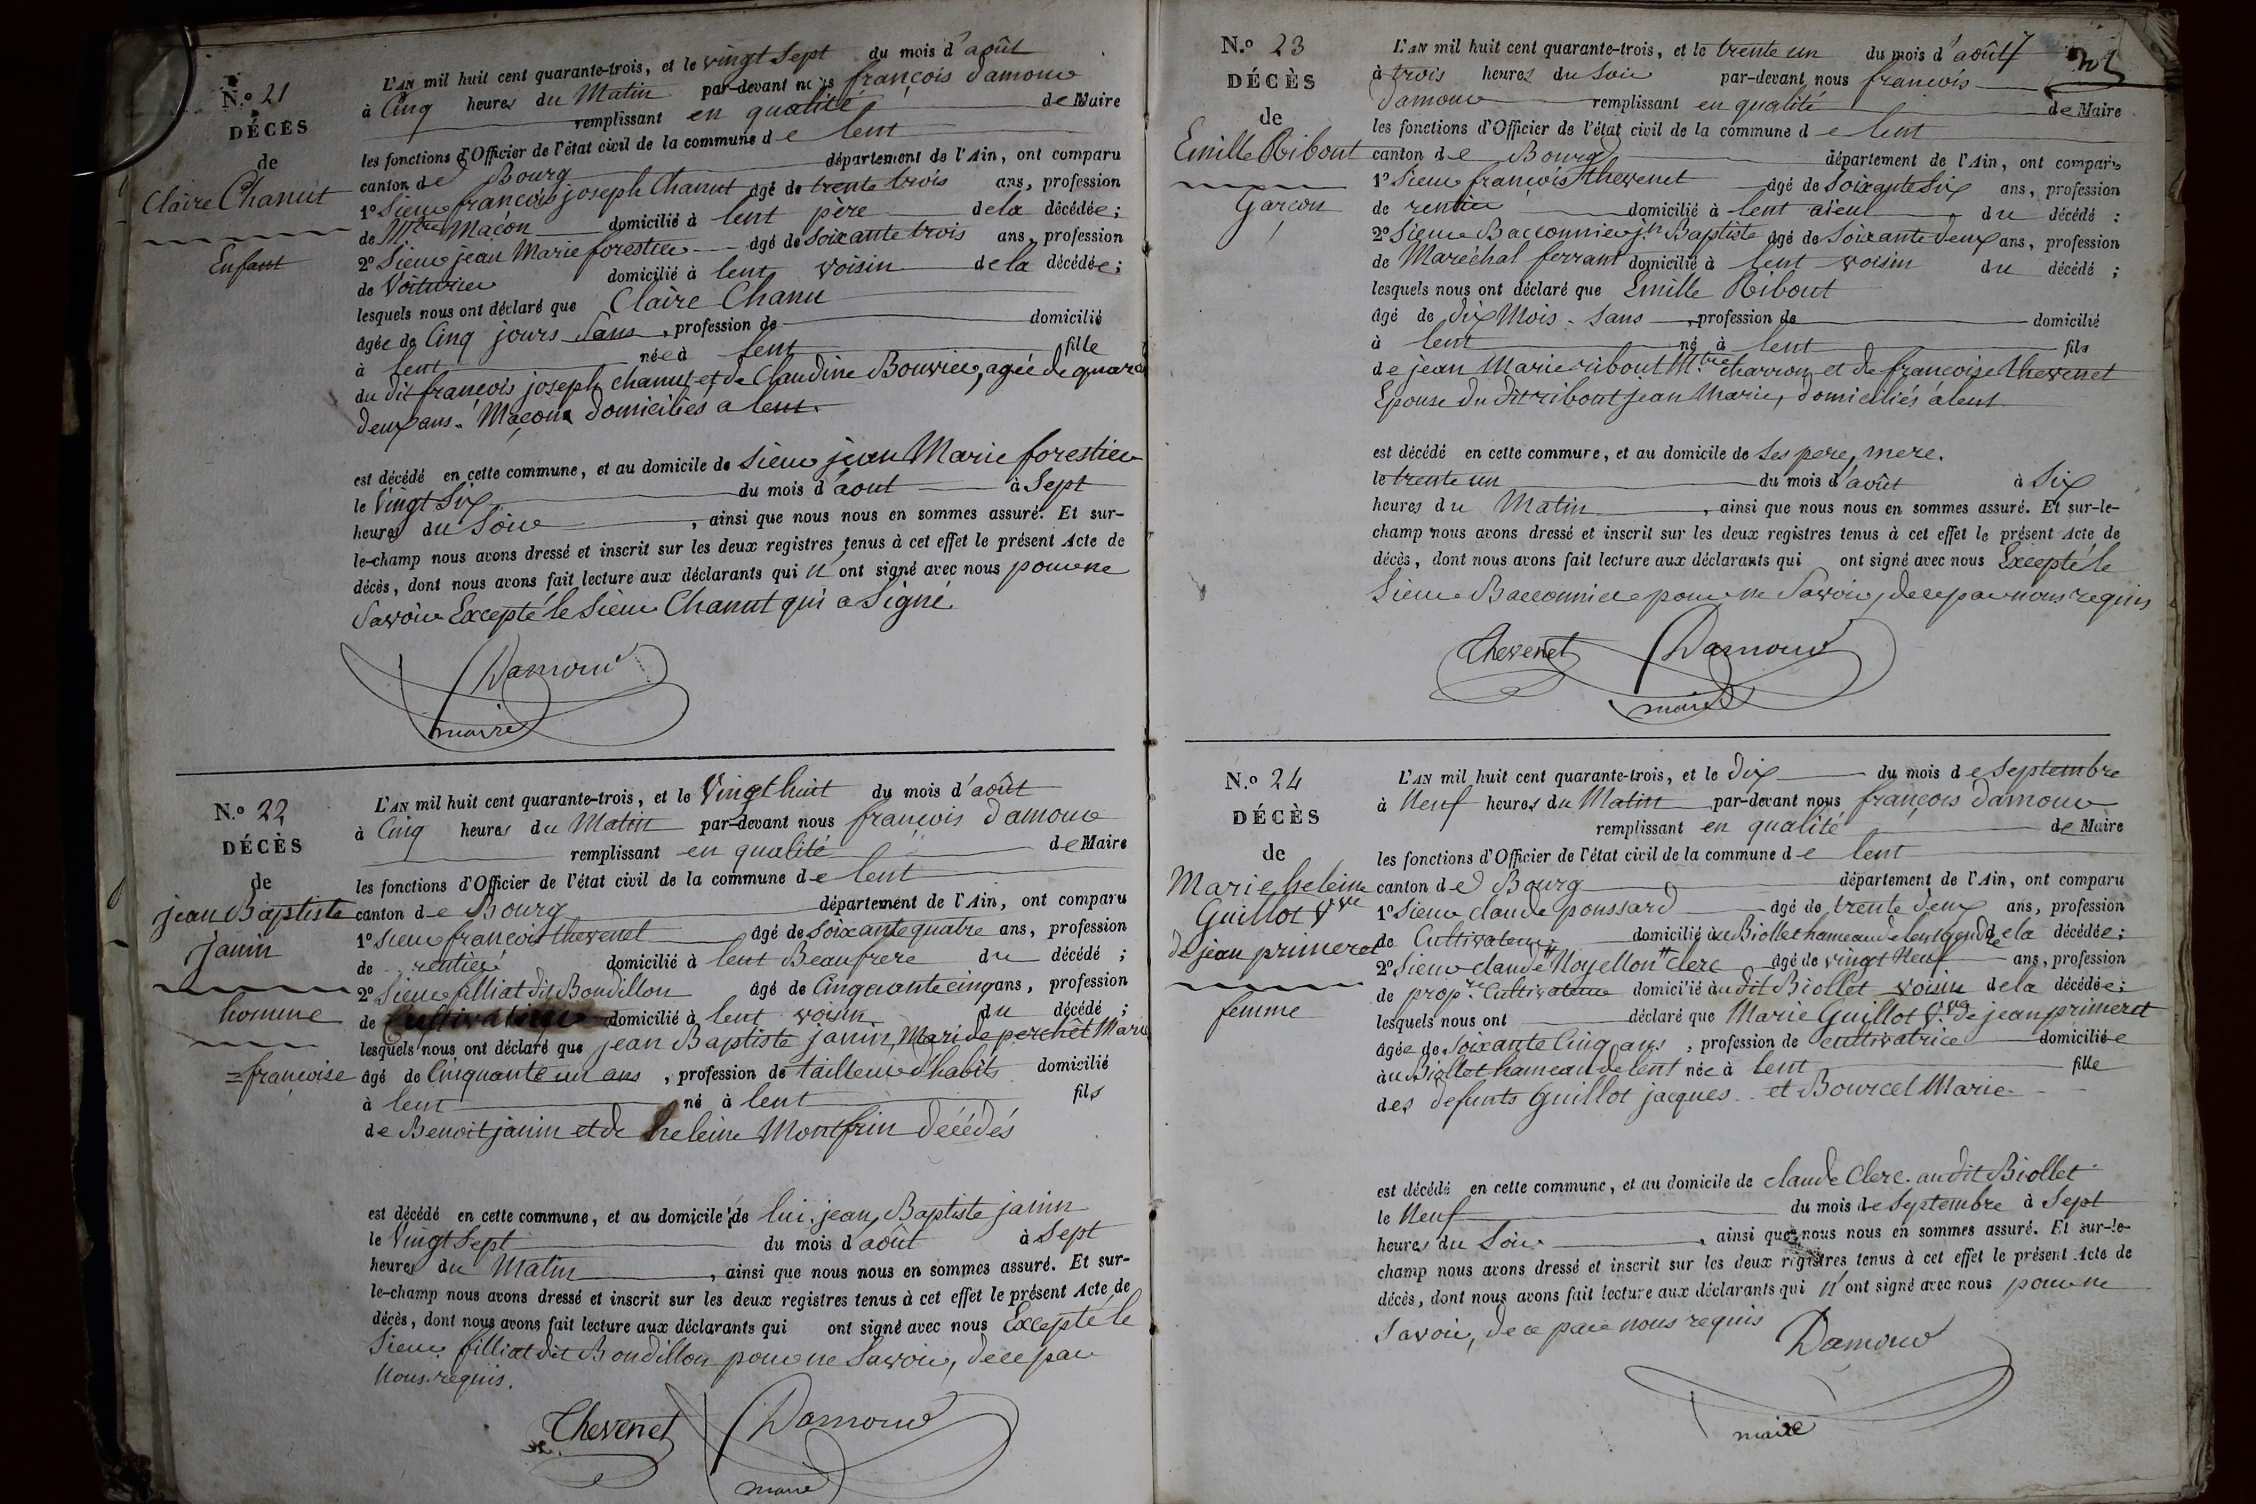 N.o 21
DÉCÈS
de
Claire Chanut
Enfant
L'AN mil huit cent quarante-trois, et le vingt sept du mois d'août
à Cinq heures du Matin par-devant nous françois damour
remplissant en qualité de Maire
les fonctions d'Officier de l'état civil de la commune de lent
canton de Bourg département de l'Ain, ont comparu
1o Sieur françois joseph Chanut âgé de trente trois ans, profession
de Mtre Maçon domicilié à lent père de la décédée;
2o Sieur jean Marie forestier âgé de soixante trois ans, profession
de Voiturier domicilié à lent voisin de la décédée;
lesquels nous ont déclaré que Claire Chanu
âgée de Cinq jours Sans, profession de domicilié
à lent née à lent fille
du dit françois joseph chanut et de Claudine Bouvier, agée de quare
deux ans. Maçon domiciliés a lent.
est décédé en cette commune, et au domicile de sieur jean Marie forestier
le Vingt Six du mois d'aout à Sept
heures du Soir, ainsi que nous nous en sommes assuré. Et sur-
le-champ nous avons dressé et inscrit sur les deux registres tenus à cet effet le présent Acte de
décès, dont nous avons fait lecture aux déclarants qui n'ont signé avec nous pour ne
Savoir Excepté le Sieur Chanut qui a Signé.
Damour
maire
N.o 22
DÉCÈS
de
jean Baptiste
janin
homme
=françoise
L'AN mil huit cent quarante-trois, et le Vingt huit du mois d'août
à Cinq heures du Matin par-devant nous françois damour
remplissant en qualité de Maire
les fonctions d'Officier de l'état civil de la commune de lent
canton de Bourg département de l'Ain, ont comparu
1o sieur francois thevenet âgé de soixante quatre ans, profession
de rentier domicilié à lent Beaufrere du décédé;
2o Sieur filliat dit Bondillon âgé de Cinquante cinq ans, profession
de Cultivateur domicilié à lent voisin du décédé;
lesquels nous ont déclaré que jean Baptiste janin, Mari de perchêt Marie
âgé de Cinquante un ans, profession de tailleur d'habits domicilié
à lent né à lent fils
de Benoit janin et de heleine Montfrin décédés
est décédé en cette commune, et au domicile de lui, jean Baptiste janin
le Vingt Sept du mois d'août à Sept
heures du Matin, ainsi que nous nous en sommes assuré. Et sur-
le-champ nous avons dressé et inscrit sur les deux registres tenus à cet effet le présent Acte de
décès, dont nous avons fait lecture aux déclarants qui ont signé avec nous Excepté le
Sieur filliat dit Bondillon pour ne Savoir, de ce par
Nous requis.
Thevenet Damour
maire
N.o 23
DÉCÈS
de
Emille Ribout
Garçon
L'AN mil huit cent quarante-trois, et le trente un du mois d'août
à trois heures du Soir par-devant nous francois
damour remplissant en qualité de Maire
les fonctions d'Officier de l'état civil de la commune de lent
canton de Bourg département de l'Ain, ont comparu
1o Sieur françois thevenet âgé de Soixante Six ans, profession
de rentier domicilié à lent aïeul du décédé:
2o Sieur Bacconnier jn Baptiste âgé de Soixante deux ans, profession
de Maréchal ferrant domicilié à lent voisin du décédé;
lesquels nous ont déclaré que Emille Ribout
âgé de dix Mois - Sans, profession de domicilié
à lent né à lent fils
de jean Marie ribout Mtre charron et de françoise thevenet
Epouse du dit ribout jean Marie, domiciliés à lent
est décédé en cette commune, et au domicile de ses pere, mere.
le trente un du mois d'août à Six
heures du Matin, ainsi que nous nous en sommes assuré. Et sur-le-
champ nous avons dressé et inscrit sur les deux registres tenus à cet effet le présent Acte de
décès, dont nous avons fait lecture aux déclarants qui ont signé avec nous Excepté le
Sieur Bacconnier pour ne Savoir, de ce par nous requis
Thevenet Damour
maire
N.o 24
DÉCÈS
de
Marie heleine
Guillot Vve
de jean primeret
femme
L'AN mil huit cent quarante-trois, et le dix du mois de Septembre
à Neuf heures du Matin par-devant nous françois damour
remplissant en qualité de Maire
les fonctions d'Officier de l'état civil de la commune de lent
canton de Bourg département de l'Ain, ont comparu
1o Sieur claude poussard âgé de trente deux ans, profession
de Cultivateur domicilié au Biollet hameau de lent gendre de la décédée;
2o Sieur claude "Noyellon" clerc âgé de vingt Neuf ans, profession
de propre Cultivateur domicilié au dit Biollet voisin de la décédée;
lesquels nous ont déclaré que Marie Guillot Vve de jean primeret
âgée de Soixante Cinq ans, profession de cultivatrice domiciliée
au Biollet hameau de lent née à lent fille
des defunts Guillot jacques et Bourcel Marie
est décédé en cette commune, et au domicile de claude Clerc au dit Biollet
le Neuf du mois de Septembre à Sept
heures du Soir, ainsi que nous nous en sommes assuré. Et sur-le-
champ nous avons dressé et inscrit sur les deux registres tenus à cet effet le présent Acte de
décès, dont nous avons fait lecture aux déclarants qui n'ont signé avec nous pour ne
Savoir, de ce par nous requis
Damour
maire